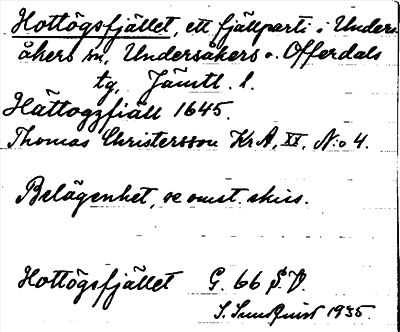 Hottögsfjället, ett fjällparti i Unders-
åkers sn, Undersåkers o. Offerdals
tg, Jämtl. l.
Håttogzfiäll 1645.
Thomas Christersson KrA, XX, No 4.
Belägenhet, se omst. skiss.
Hottögsfjället G. 66 S.V.
S. Sundquist 1935.